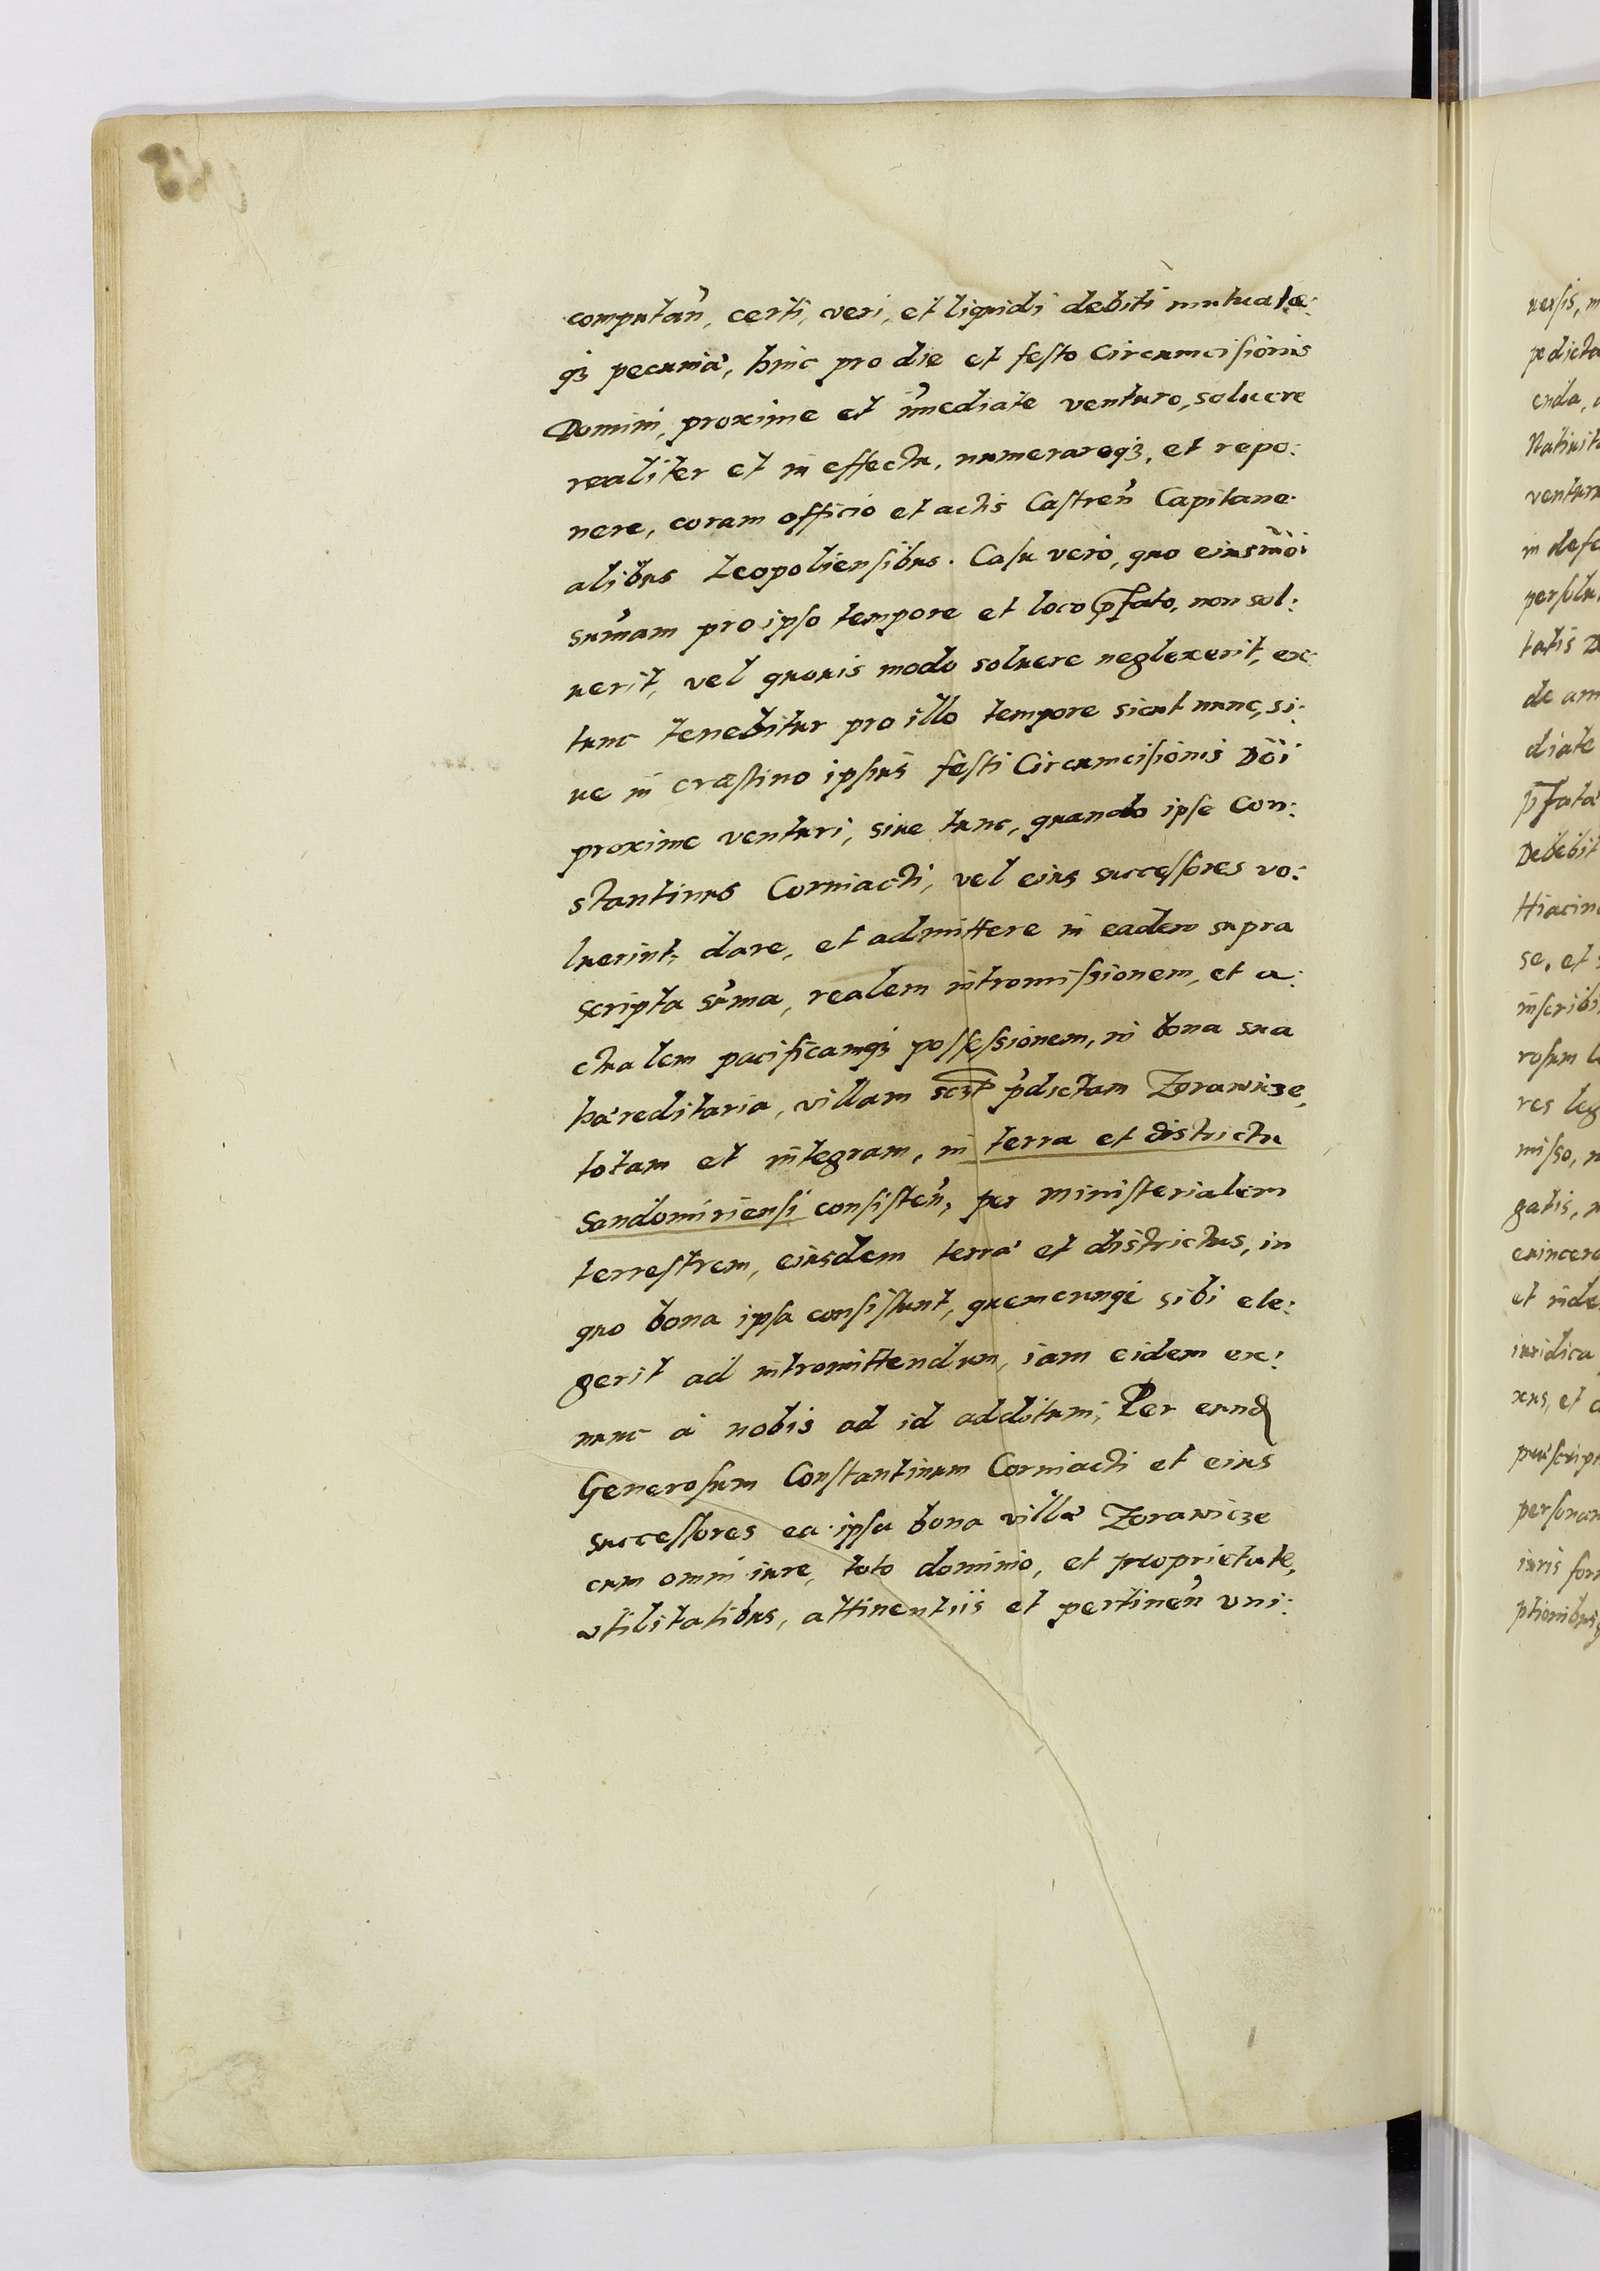 computan̄, certi, veri, et liquidi debiti mutuatæ:
qȝ pecuniæ, hinc pro die et festo Circumcisionis
Domini, proxime et im̄ediate venturo, soluere
realiter et in effectu, numerareqȝ, et repo:
nere, coram officio et actis Castren̄ Capitane:
alibus Leopoliensibus. Casu verò, quo eiusm̄oi
sum̄am pro ipso tempore et loco p̄fato, non sol:
uerit, vel quouis modo soluere neglexerit, ex
tunc tenebitur pro illo tempore sicut nunc, si:
ue in crastino ipsius festi Circumcisionis Dn̄i
proxime venturi, siue tunc, quando ipse Con:
stantinus Corniacti, vel eius successores vo:
luerint, dare, et admittere in eadem supra
scripta sum̄a, realem intromissionem, et a:
ctualem pacificamqȝ possessionem, in bona sua
hæreditaria, villam sczt p̄dictam Zorawicze,
totam et integram, in terra et districtu
Sandomiriensi consisten̄, per Ministerialem
terrestrem, eiusdem terræ et districtus, in
quo bona ipsa consistunt, quemcunqȝ sibi ele:
gerit ad intromittendum, iam eidem ex:
nunc à nobis ad id additum; Per eund
Generosum Constantinum Corniacti et eius
successores ea ipsa bona villæ Zorawicze
cum omni iure, toto dominio, et proprietate,
vtilitatibus, attinentiis et pertinen̄ vni:
uersis,
pdicta
enda,
ventur
tatis
diate
Debebit
se, et
res
misso,
gatis,
iuridica
iuris